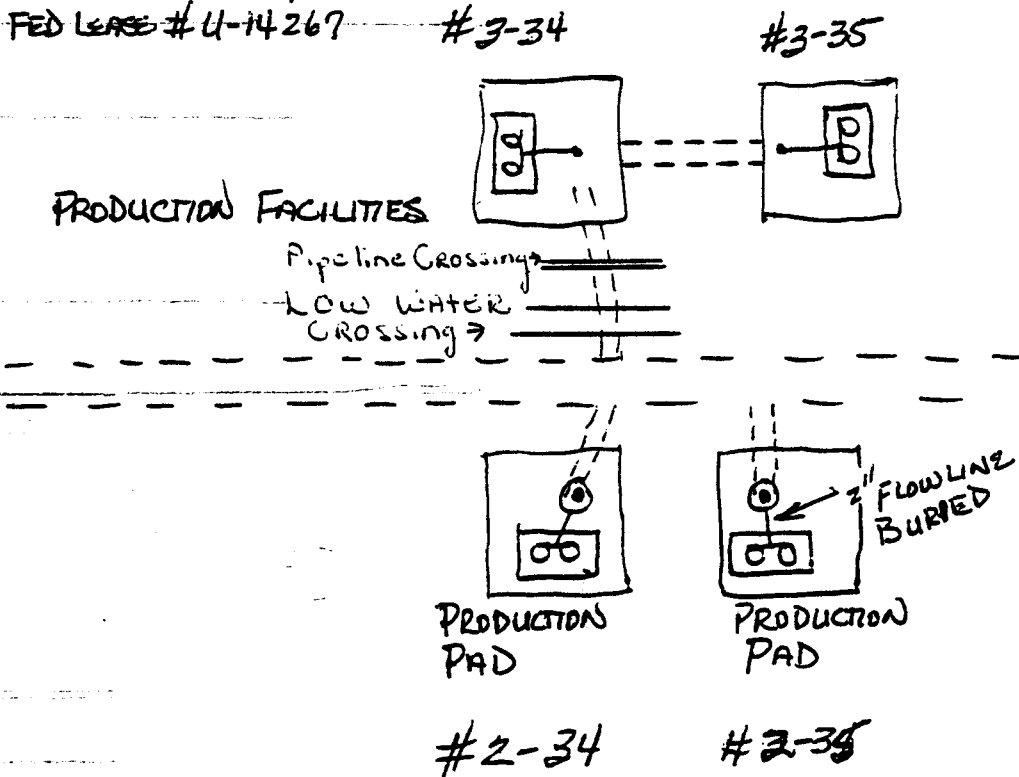 FED LEASE # U-14267
#3-34
#3-35
PRODUCTION FACILITIES
Pipeline Crossing→
LOW WATER
CROSSING →
2" FLOWLINE
BURIED
PRODUCTION
PAD
PRODUCTION
PAD
#2-34
#2-35